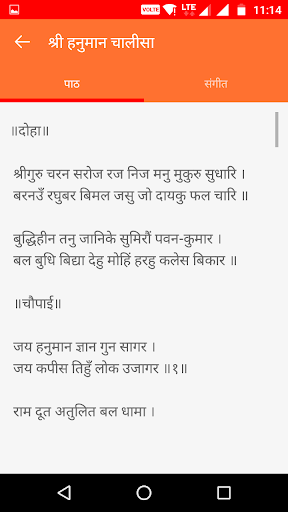 VOLTE LTE 11:14
श्री हनुमान चालीसा
पाठ संगीत
॥दोहा॥
श्रीगुरु चरन सरोज रज निज मनु मुकुरु सुधारि ।
बरनउँ रघुबर बिमल जसु जो दायकु फल चारि ॥
बुद्धिहीन तनु जानिके सुमिरौं पवन-कुमार ।
बल बुधि बिद्या देहु मोहिं हरहु कलेस बिकार ॥
॥चौपाई॥
जय हनुमान ज्ञान गुन सागर ।
जय कपीस तिहुँ लोक उजागर ॥१॥
राम दूत अतुलित बल धामा ।